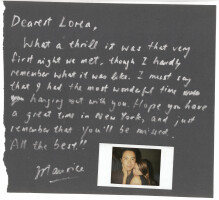 Dearest Lorea,
What a thrill it was that very
first night we met, though I hardly
remember what it was like. I must say
that I had the most wonderful time
hanging out with you. Hope you have
a great time in New York, and just
remember that you'll be missed.
All the best!!
Maurice